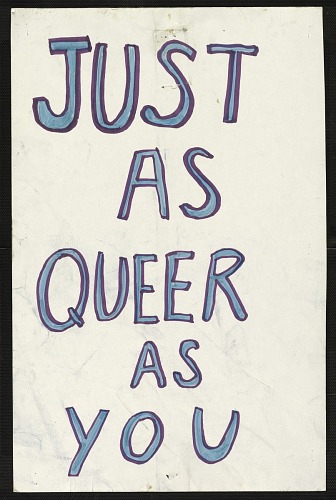 JUST
AS
QUEER
AS
YOU